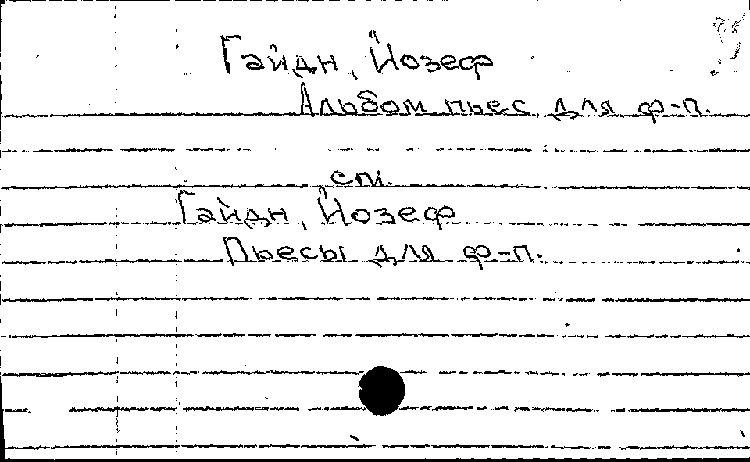 Гайдн, Йозеф
Альбом пьес для ф-п.
см.
Гайдн, Йозеф
Пьесы для ф-п.